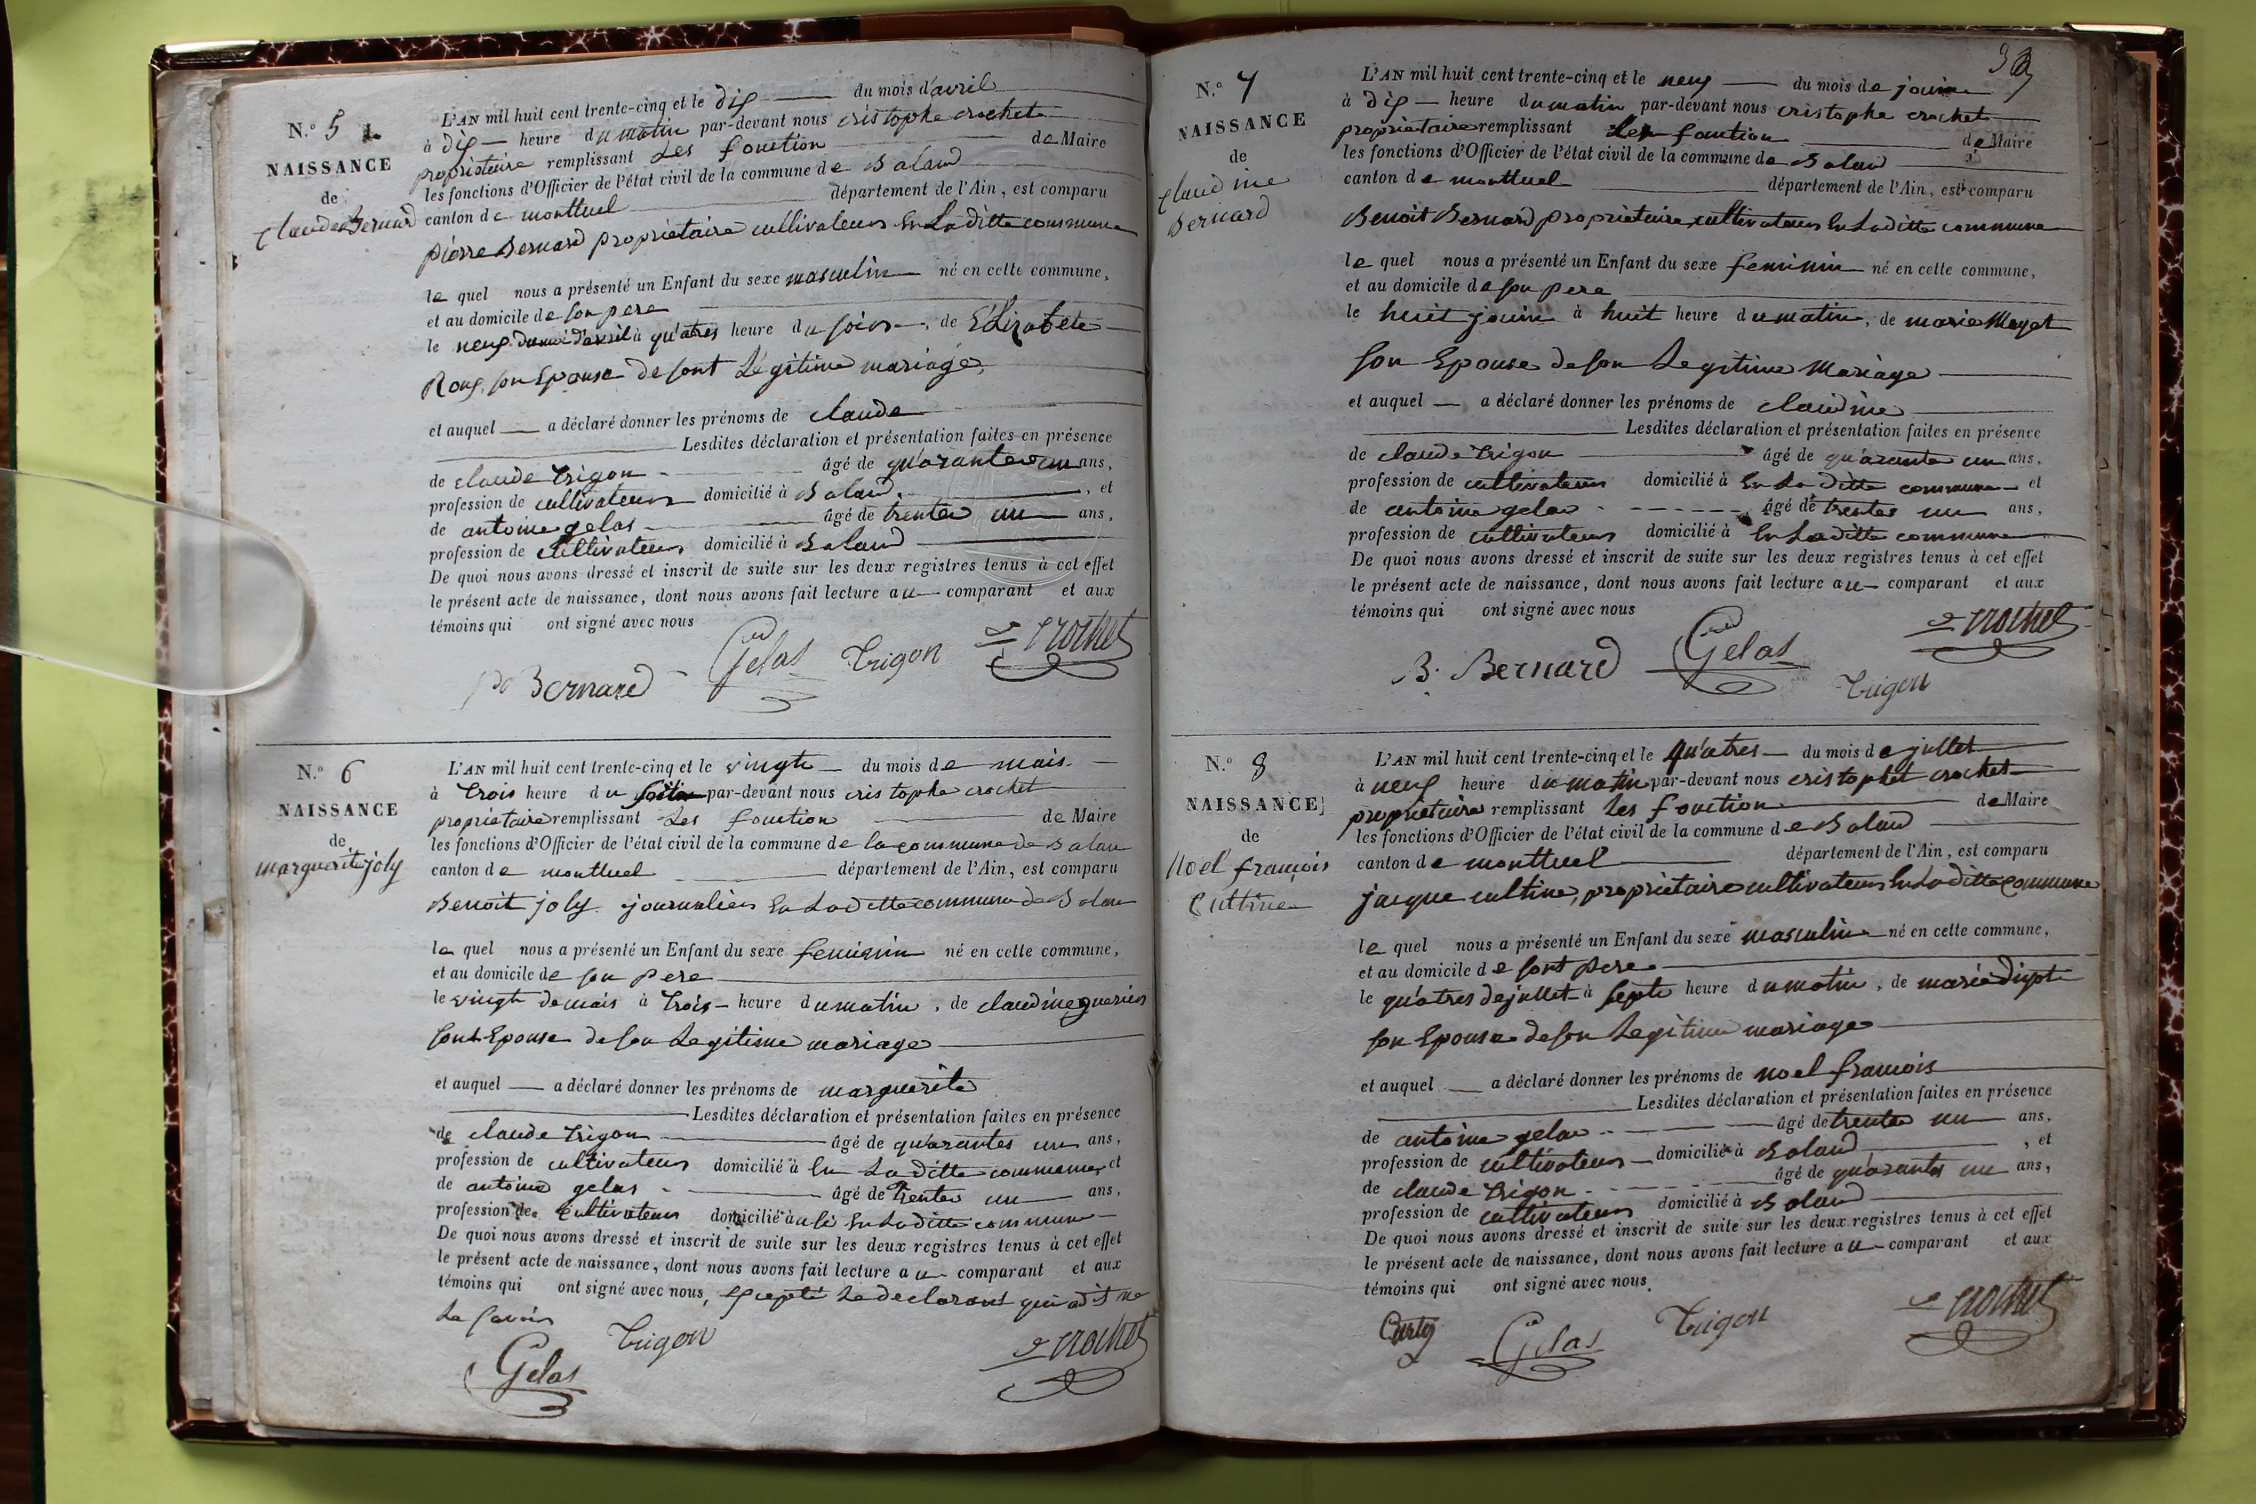 N.º 5
NAISSANCE
de
claude Bernard
L'AN mil huit cent trente-cinq et le dix du mois d'avril
à dix heure du matin par-devant nous cristophe crochet
propriétaire remplissant Les fonction de Maire
les fonctions d'Officier de l'état civil de la commune de Baland
canton de montluel département de l'Ain, est comparu
pierre Bernard propriétaire cultivateur En Laditte commune
le quel nous a présenté un Enfant du sexe masculin né en cette commune,
et au domicile de son pere
le neuf d'avril à qu'atres heure du soir, de Elizabete
Roux son Epouse de sont Légitime mariage
et auquel a déclaré donner les prénoms de claude
Lesdites déclaration et présentation faites en présence
de claude trigon âgé de qu'arante un ans,
profession de cultivateur domicilié à Baland, et
de antoine gelas âgé de trente un ans,
profession de cultivateur domicilié à Baland
De quoi nous avons dressé et inscrit de suite sur les deux registres tenus à cet effet
le présent acte de naissance, dont nous avons fait lecture au comparant et aux
témoins qui ont signé avec nous
Bernard Gelas trigon crochet
N.º 6
NAISSANCE
de
marguerite joly
L'AN mil huit cent trente-cinq et le vingt du mois de mais
à trois heure du par-devant nous cristophe crochet
propriétaire remplissant Les fonction de Maire
les fonctions d'Officier de l'état civil de la commune de la commune de Balan
canton de montluel département de l'Ain, est comparu
Benoit joly journalier En Laditte commune de Balan
le quel nous a présenté un Enfant du sexe feminin né en cette commune,
et au domicile de son pere
le vingt de mais à trois heure du matin, de claudine guerier
sont Epouse de son Legitime mariage
et auquel a déclaré donner les prénoms de marguerite
Lesdites déclaration et présentation faites en présence
de claude trigon âgé de qu'arantes un ans,
profession de cultivateur domicilié à En Laditte commune et
de antoine gelas âgé de trente un ans,
profession de cultivateur domicilié à En Laditte commune
De quoi nous avons dressé et inscrit de suite sur les deux registres tenus à cet effet
le présent acte de naissance, dont nous avons fait lecture au comparant et aux
témoins qui ont signé avec nous, Excepté Le declarant qui a dit ne
Le savoir
Gelas trigon crochet
N.º 7
NAISSANCE
de
claudine
Bernard
L'AN mil huit cent trente-cinq et le neuf du mois de jouin
à dix heure du matin par-devant nous cristophe crochet
propriétaire remplissant Les fonction de Maire
les fonctions d'Officier de l'état civil de la commune de Baland
canton de montluel département de l'Ain, est comparu
Benoit Bernard propriétaire cultivateur En Laditte commune
le quel nous a présenté un Enfant du sexe feminin né en cette commune,
et au domicile de son pere
le huit jouin à huit heure du matin, de marie Meyet
son Epouse de son Legitime Mariage
et auquel a déclaré donner les prénoms de claudine
Lesdites déclaration et présentation faites en présence
de claude trigon âgé de qu'arante un ans,
profession de cultivateur domicilié à En Laditte commune et
de antoine gelas âgé de trentes un ans,
profession de cultivateur domicilié à En Laditte commune
De quoi nous avons dressé et inscrit de suite sur les deux registres tenus à cet effet
le présent acte de naissance, dont nous avons fait lecture au comparant et aux
témoins qui ont signé avec nous
B. Bernard Gelas trigon crochet
N.º 8
NAISSANCE
de
Noel françois
Cultine
L'AN mil huit cent trente-cinq et le qu'atres du mois de jullet
à neuf heure du matin par-devant nous cristophe crochet
propriétaire remplissant Les fonction de Maire
les fonctions d'Officier de l'état civil de la commune de Baland
canton de montluel département de l'Ain, est comparu
jacque cultine, propriétaire cultivateur En Laditte commune
le quel nous a présenté un Enfant du sexe masculin né en cette commune,
et au domicile de sont pere
le qu'atres de jullet à septe heure du matin, de marie
son Epouse de son Legitime mariage
et auquel a déclaré donner les prénoms de noel francois
Lesdites déclaration et présentation faites en présence
de antoine gelas âgé de trente un ans,
profession de cultivateur domicilié à Baland, et
de claude trigon âgé de qu'arantes un ans,
profession de cultivateur domicilié à Baland
De quoi nous avons dressé et inscrit de suite sur les deux registres tenus à cet effet
le présent acte de naissance, dont nous avons fait lecture au comparant et aux
témoins qui ont signé avec nous.
Gelas trigon crochet